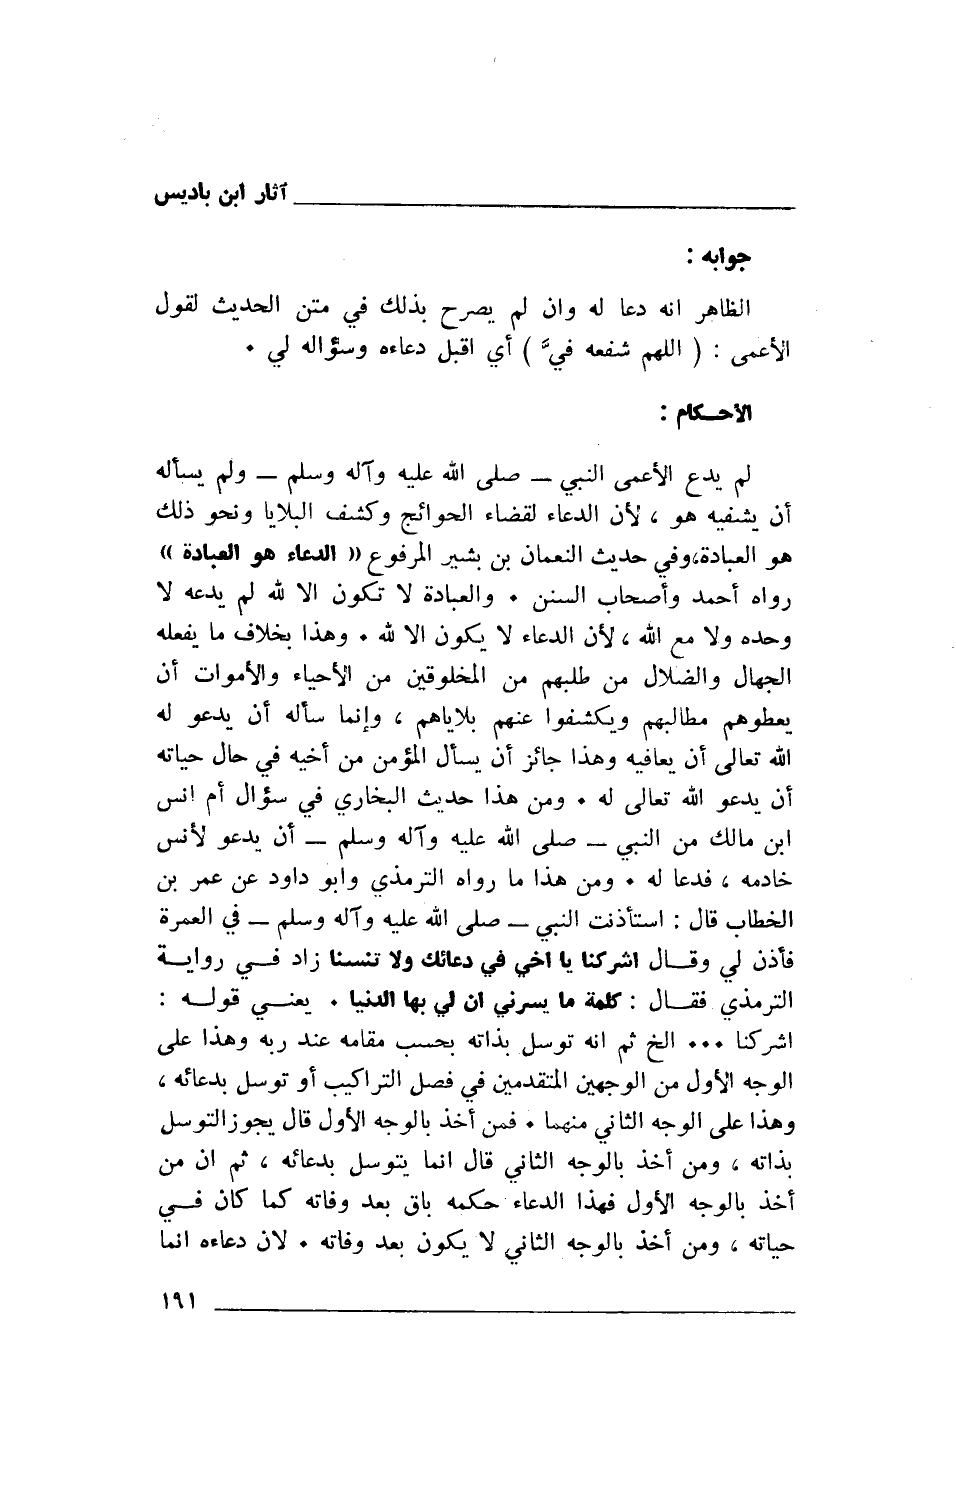 آثار ابن باديس
جوابه :
الظاهر انه دعا له وان لم يصرح بذلك في متن الحديث لقول
الأعمى : ( اللهم شفعه فيَّ ) أي اقبل دعاءه وسؤاله لي .
الأحـكام :
لم يدع الأعمى النبي ــ صلى الله عليه وآله وسلم ــ ولم يسأله
أن يشفيه هو ، لأن الدعاء لقضاء الحوائج وكشف البلايا ونحو ذلك
هو العبادة،وفي حديث النعمان بن بشير المرفوع (( الدعاء هو العبادة ))
رواه أحمد وأصحاب السنن . والعبادة لا تكون الا لله لم يدعه لا
وحده ولا مع الله ، لأن الدعاء لا يكون الا لله . وهذا بخلاف ما يفعله
الجهال والضلال من طلبهم من المخلوقين من الأحياء والأموات أن
يعطوهم مطالبهم ويكشفوا عنهم بلاياهم ، وإنما سأله أن يدعو له
الله تعالى أن يعافيه وهذا جائز أن يسأل المؤمن من أخيه في حال حياته
أن يدعو الله تعالى له . ومن هذا حديث البخاري في سؤال أم انس
ابن مالك من النبي ــ صلى الله عليه وآله وسلم ــ أن يدعو لأنس
خادمه ، فدعا له . ومن هذا ما رواه الترمذي وابو داود عن عمر بن
الخطاب قال : استأذنت النبي ــ صلى الله عليه وآله وسلم ــ في العمرة
فأذن لي وقــال اشركنا يا اخي في دعائك ولا تنسنا زاد فــي روايـة
الترمذي فقــال : كلمة ما يسرني ان لي بها الدنيا . يعنــي قولــه :
اشركنا ... الخ ثم انه توسل بذاته بحسب مقامه عند ربه وهذا على
الوجه الأول من الوجهين المتقدمين في فصل التراكيب أو توسل بدعائه ،
وهذا على الوجه الثاني منهما . فمن أخذ بالوجه الأول قال يجوز التوسل
بذاته ، ومن أخذ بالوجه الثاني قال انما يتوسل بدعائه ، ثم ان من
أخذ بالوجه الأول فهذا الدعاء حكمه باق بعد وفاته كما كان فــي
حياته ، ومن أخذ بالوجه الثاني لا يكون بعد وفاته . لان دعاءه انما
١٩١